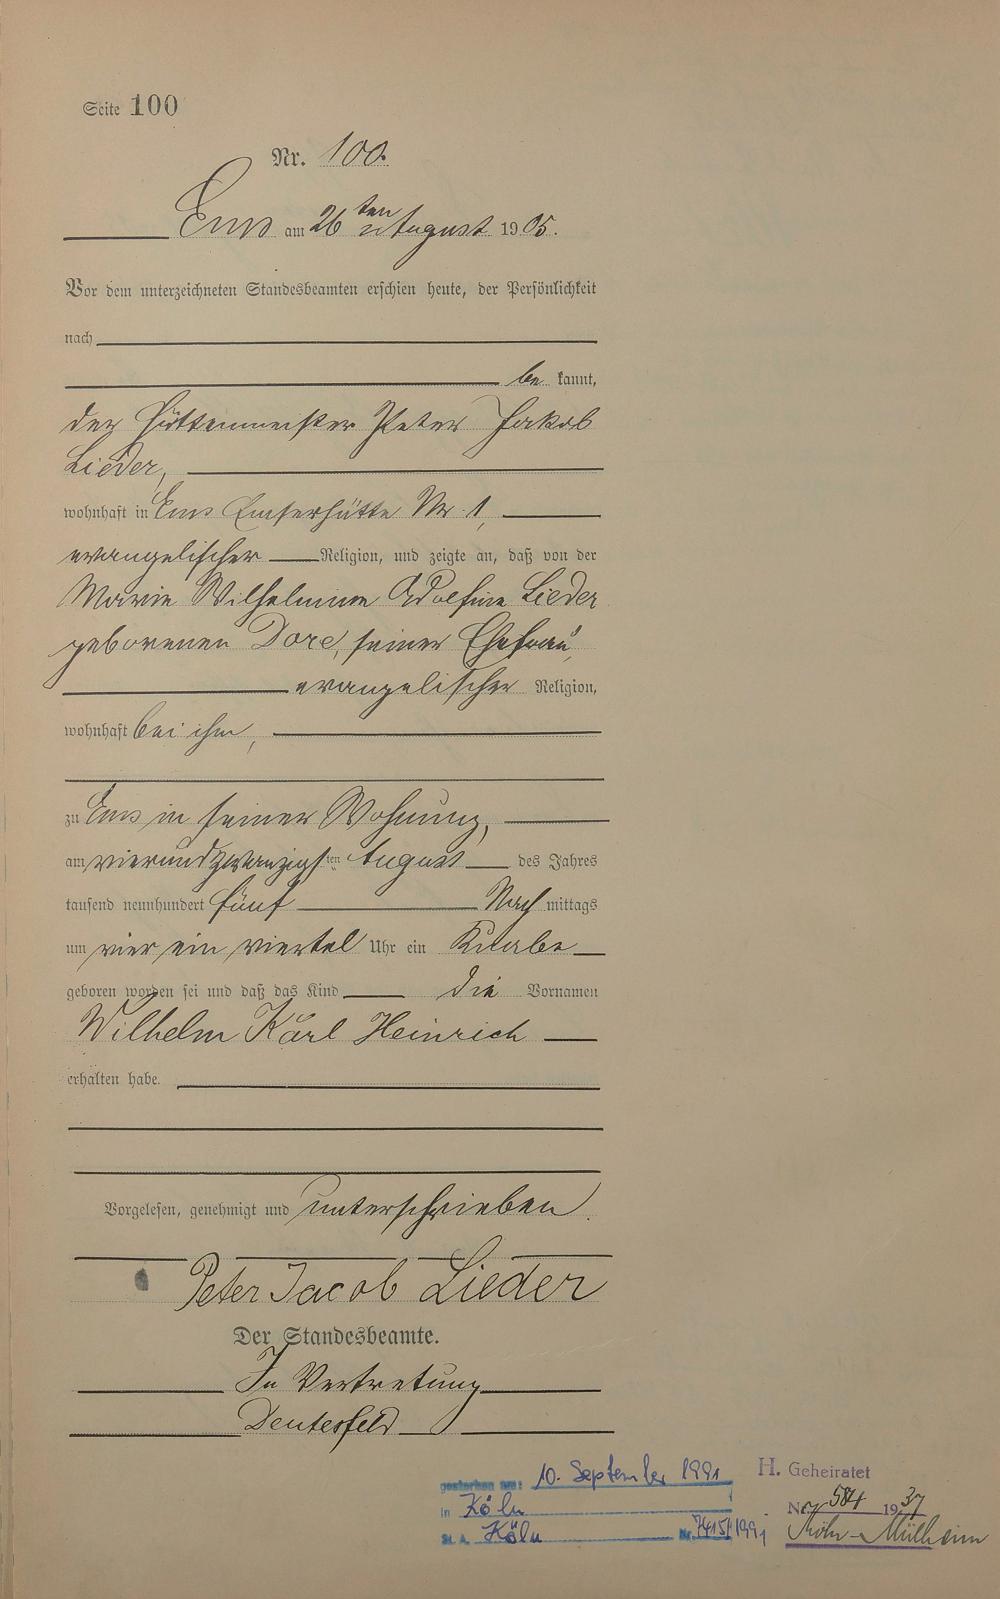 Seite 100
Nr. 100.
Ems am 26ten August 1905.
Vor dem unterzeichneten Standesbeamten erschien heute, der Persönlichkeit
nach
be kannt,
der Hüttenmeister Peter Jakob
Lieder,
wohnhaft in Ems Emserhütte Nr. 1,
evangelischer Religion, und zeigte an, daß von der
Marie Wilhelmine Adolfine Lieder
geborenen Dore, seiner Ehefrau,
evangelischer Religion,
wohnhaft bei ihm,
zu Ems in seiner Wohnung,
am vierundzwanzigsten August des Jahres
tausend neunhundert fünf Nach mittags
um vier ein viertel Uhr ein Knabe
geboren worden sei und daß das Kind die Vornamen
Wilhelm Karl Heinrich
erhalten habe.
Vorgelesen, genehmigt und unterschrieben.
Peter Jacob Lieder
Der Standesbeamte.
In Vertretung
gestorben am: 10. September 1991
in Köln
St. A. Köln Nr. 7415/1991
H. Geheiratet
Nr. 584 1937
Köln-Mülheim